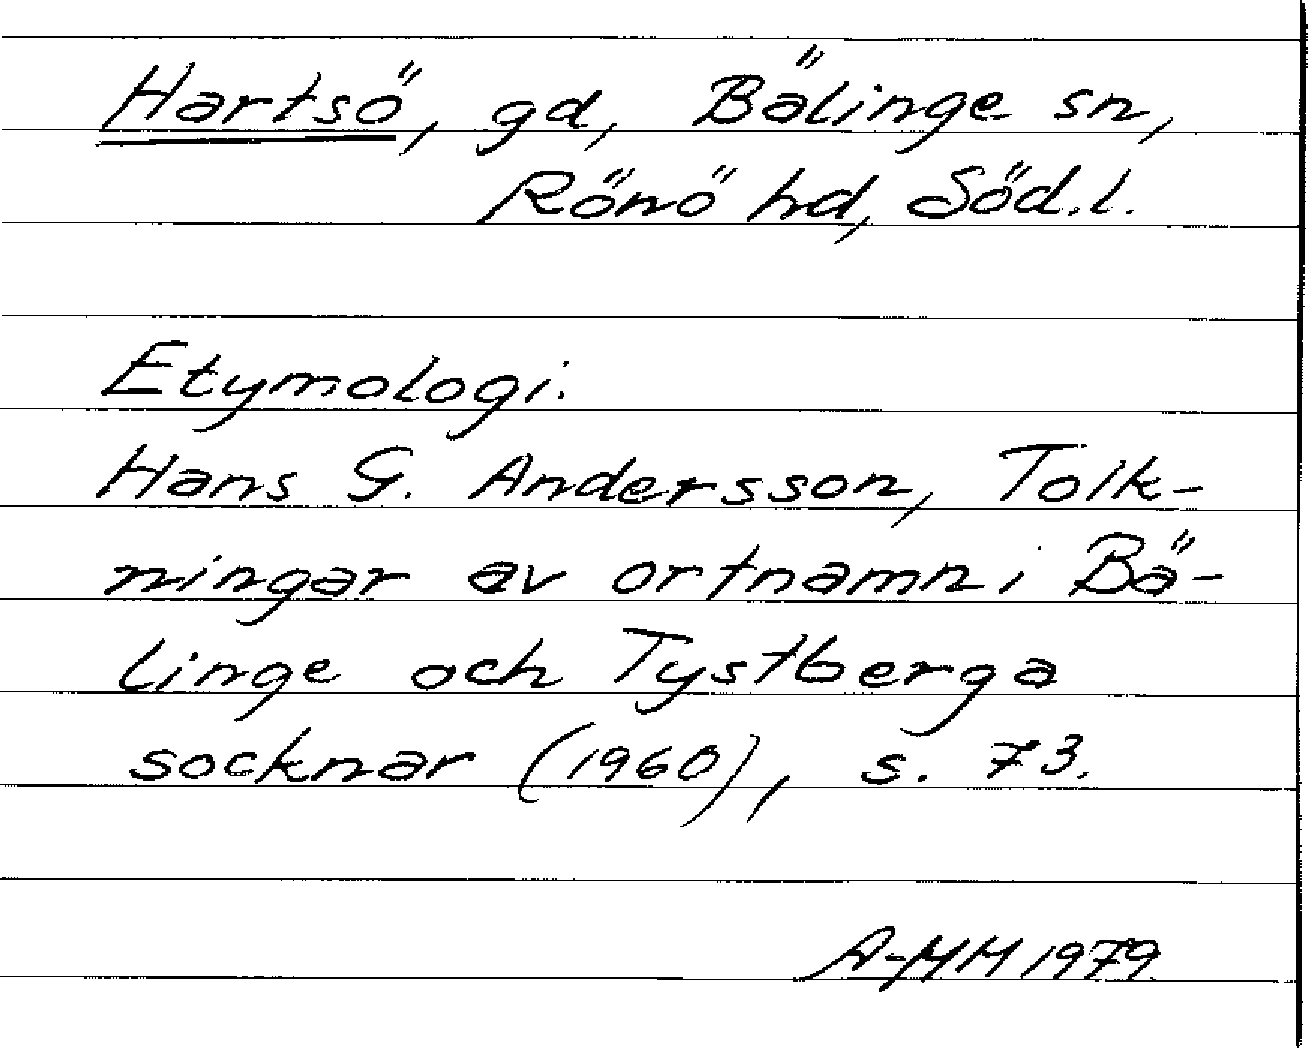 Hartsö, gd, Bälinge sn,
Rönö hd, Söd.l.
Etymologi.
Hans G. Andersson, Tolk-
ningar av ortnamn i Bä-
linge och Tystberga
socknar (1960), s. 73.
A-MM 1979